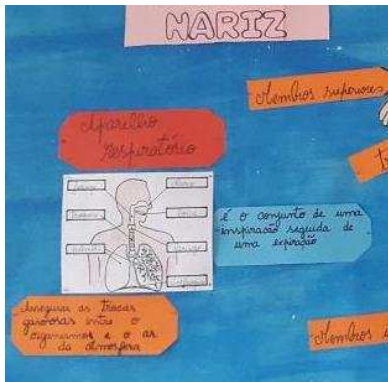 NARIZ
Membros superiores
t
Aparelho
respiratório
é o conjunto de uma
inspiração seguida de
uma expiração
Assegura as trocas
gasosas entre o
organismos e o ar
da atmosfera
Membros i